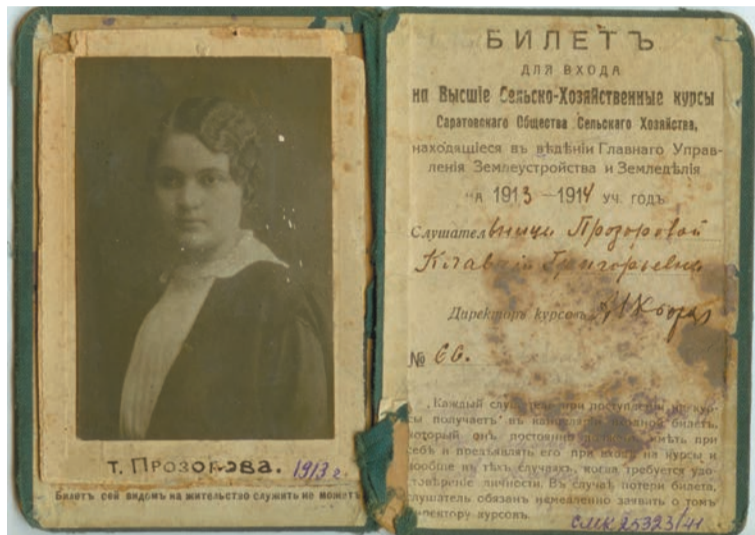 Т. Прозорова. 1913 г.
Билетъ сей видомъ на жительство служить не можетъ
БИЛЕТЪ
ДЛЯ ВХОДА
на Высшіе Сельско-Хозяйственные курсы
Саратовскаго Общества Сельскаго Хозяйства,
находящіеся въ вѣдѣніи Главнаго Управ-
ленія Землеустройства и Земледѣлія
на 1913—1914 уч. годъ
Слушательницы Прозоровой
Григорьевны
Директоръ курсовъ
№ 66.
Каждый слушатель при поступленіи на кур-
сы получаетъ въ канцеляріи входной билетъ,
который онъ постоянно имѣть при
себѣ и предъявлять его при входѣ на курсы и
вообще въ тѣхъ случаяхъ, когда требуется удо-
стовѣреніе личности. Въ случаѣ потери билета,
слушатель обязанъ немедленно заявить о томъ
директору курсовъ.
СМК 25323/41